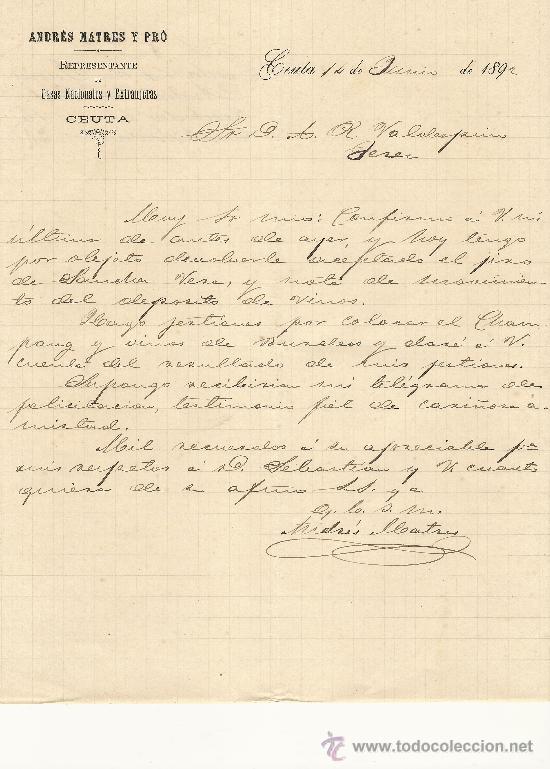 ANDRÉS MATRES Y PRÓ
REPRESENTANTE
DE
Casas Nacionales y Extranjeras
CEUTA
Ceuta 14 de Junio de 1892
Sr. D. A. R. Valdespino
Jerez
Muy Sr mio: Confirmo á V mi
última de antes de ayer, y hoy tengo
por objeto devolverle aceptado el giro
de Sancho Vera, y nota de movimien-
to del deposito de Vinos.
Hago jestiones por colocar el Cham-
pang y vinos de Burdeos y daré á V.
cuenta del resultado de mis jestiones.
Supongo recibirian mi telégrama de
felicitacion, testimonio fiel de cariñosa a-
mistad.
Mil recuerdos á su apreciable
mis respetos á D. Sebastian y V cuanto
quiera de su afmo S.S. y a
q. b. s. m.
Andrés Matres
www.todocoleccion.net